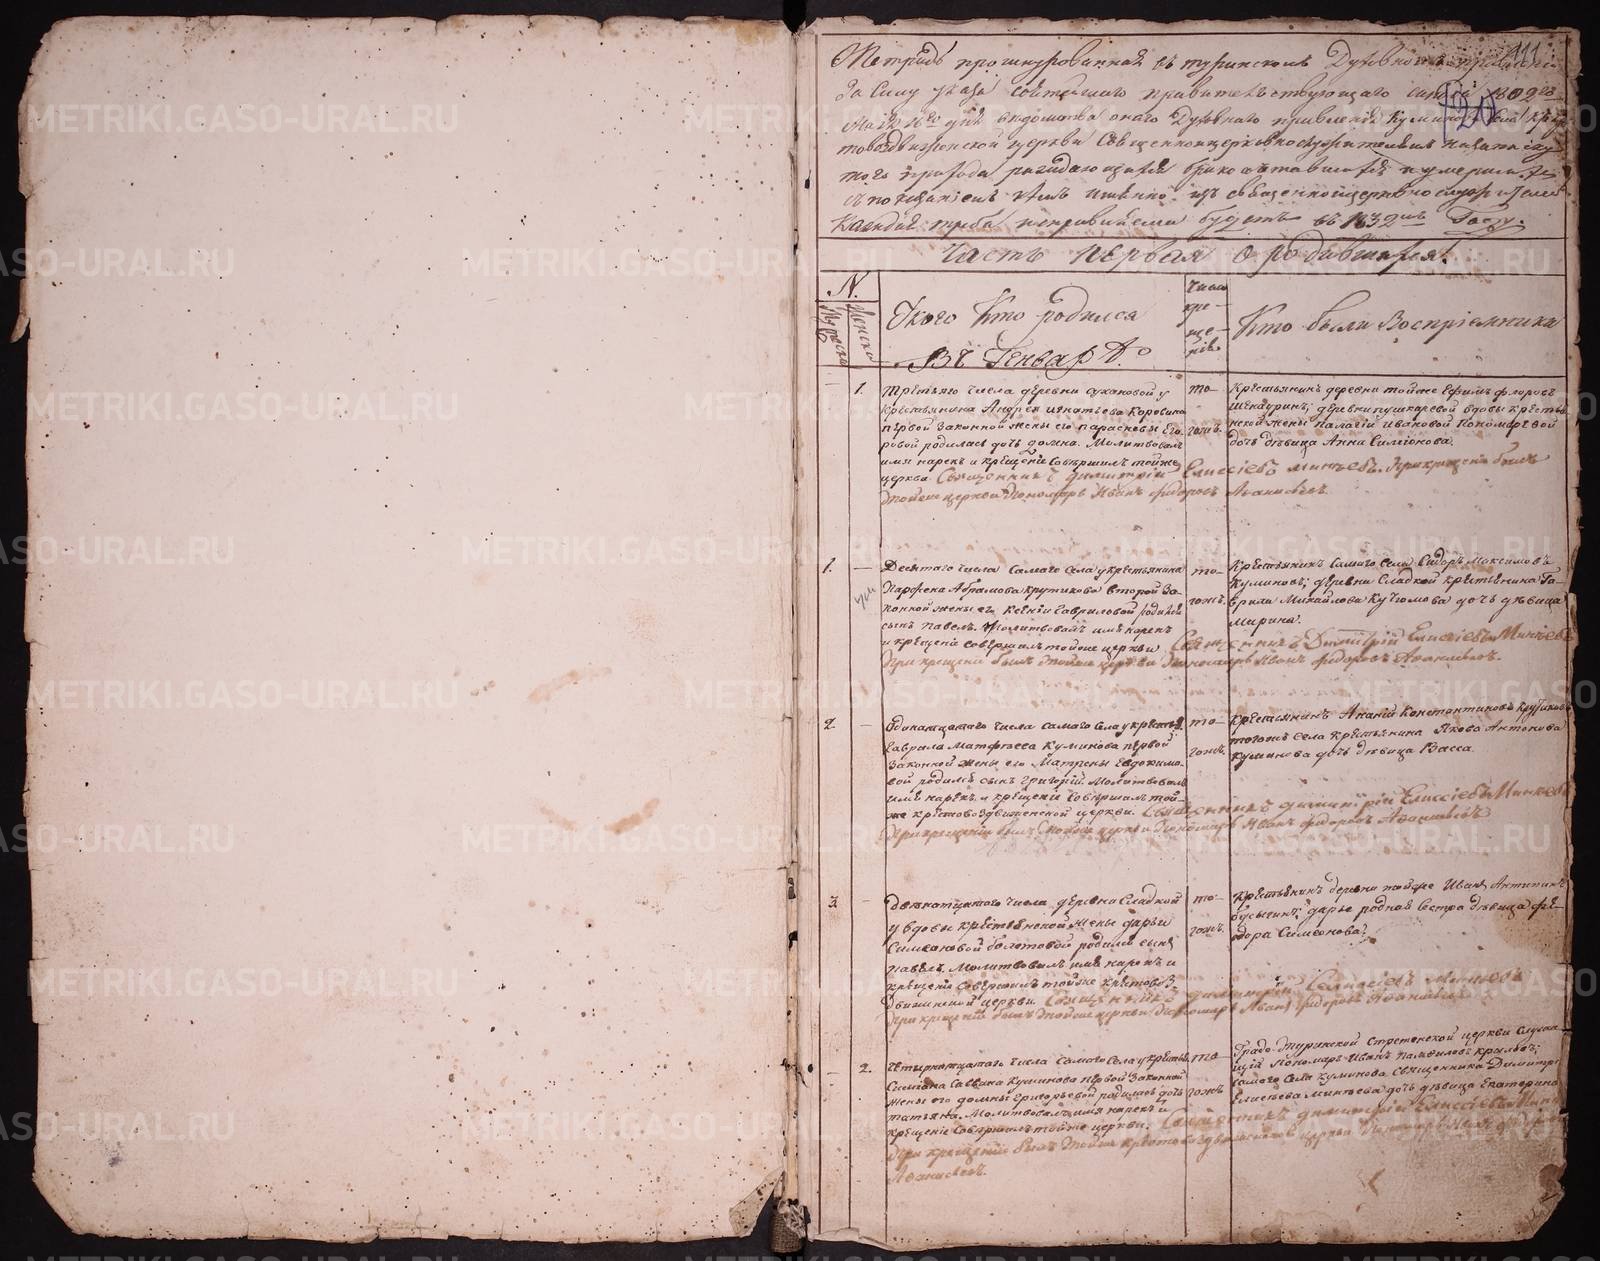 111
Тетрадь прошнурованная въ туринскомъ Духовномъ правлении
За Силу указа святейшаго правительствующаго 1802го
Маія дня ведомства онаго Духовнаго правления Куминовской Крес
товоздвиженской церкви священноцерковнослужителямъ на записку
того прихода раждающихся бракосочетавшихся и умершихъ
съ показаниемъ кемъ именно изъ священноцерковнослужителей
Каждая треба исправляема будетъ въ 1832мъ Году.
120
Часть первая о родившихся.
N.
Мужеска
Женска
У кого Кто родился
Въ Генваре
Число
кре-
ще-
ния
Кто были Воспріемники
1.
Третьяго числа деревни сухановой у
крестьянина Андрея игнатьева Коровина
первой законной жены его парасковьи Его-
ровой родилась дочь домна. Молитвовалъ
имя нарекъ и крещение совершилъ тойже
церкви Священникъ димитрій Елисіевъ минѣевъ. При крещении былъ
тойже церкви Пономарь Иванъ федоровъ Афанасьевъ.
то-
гожъ.
крестьянинъ деревни тойже Ефимъ флоровъ
деревни пушкаревой вдовы кресть-
янской жены палагіи ивановой Пономаревой
дочь дѣвица Анна Симеонова.
1.
Десятаго числа самаго села у крестьянина
Парфена Абрамова крутикова второй за-
конной жены его Ксении Гавриловой родился
сынъ павелъ. Молитвовалъ имя нарекъ
и крещение совершилъ тойже церкви Священникъ Димитрій Елисіевъ Минѣевъ
При крещении былъ тойже церкви Пономарь Иванъ федоровъ Афанасьевъ.
то-
гожъ.
Крестьянинъ самаго села Сидоръ Максимовъ
Куминовъ; деревни Сладкой крестьянина Га-
врила Михайлова дочь дѣвица
марина.
2.
Одинатцатаго числа самаго села у крестья
Гаврила Матфеева Куминова первой
законной жены его Матрены Евдокимо-
вой родился сынъ Григорій. Молитвовалъ
имя нарекъ и крещение совершилъ той-
же крестовоздвиженской церкви. Священникъ димитрій Елисіевъ Минѣевъ
При крещении былъ тойже церкви Пономарь Иванъ федоровъ Афанасьевъ
то-
гожъ.
Крестьянинъ Ананій Константиновъ Крутиковъ
тогожъ села крестьянина Якова Антонова
куминова дочь дѣвица Васса.
3.
Двенатцатаго числа деревни Сладкой
у вдовы крестьянской жены дарьи
Симеоновой болотовой родился сынъ
павелъ. Молитвовалъ имя нарекъ и
крещение совершилъ тойже крестовоз-
движенской церкви. Священникъ димитрій Елисіевъ Минѣевъ
При крещении былъ тойже церкви Пономарь Иванъ федоровъ Афанасьевъ.
то-
гожъ.
крестьянинъ деревни тойже Иванъ Антипинъ
дарье родная сестра дѣвица фе-
дора Симеонова.
2.
Четырнатцатаго числа самаго села у кресть
Симиона Саввина Куминова первой законной
жены его домны григорьевой родилась дочь
татьяна. Молитвовалъ имя нарекъ и
крещение совершилъ тойже церкви. Священникъ димитрій Елисіевъ Мин
При крещении былъ тойже крестовоздвиженской церкви Пономарь Иванъ федор
Афанасьевъ.
то-
гожъ
Градо-туринской Стретенской церкви служа
щій пономарь Иванъ Памфиловъ
самаго села куминова священника Димитрія
Елисеева минѣева дочь дѣвица Екатерина
METRIKI.GASO-URAL.RU